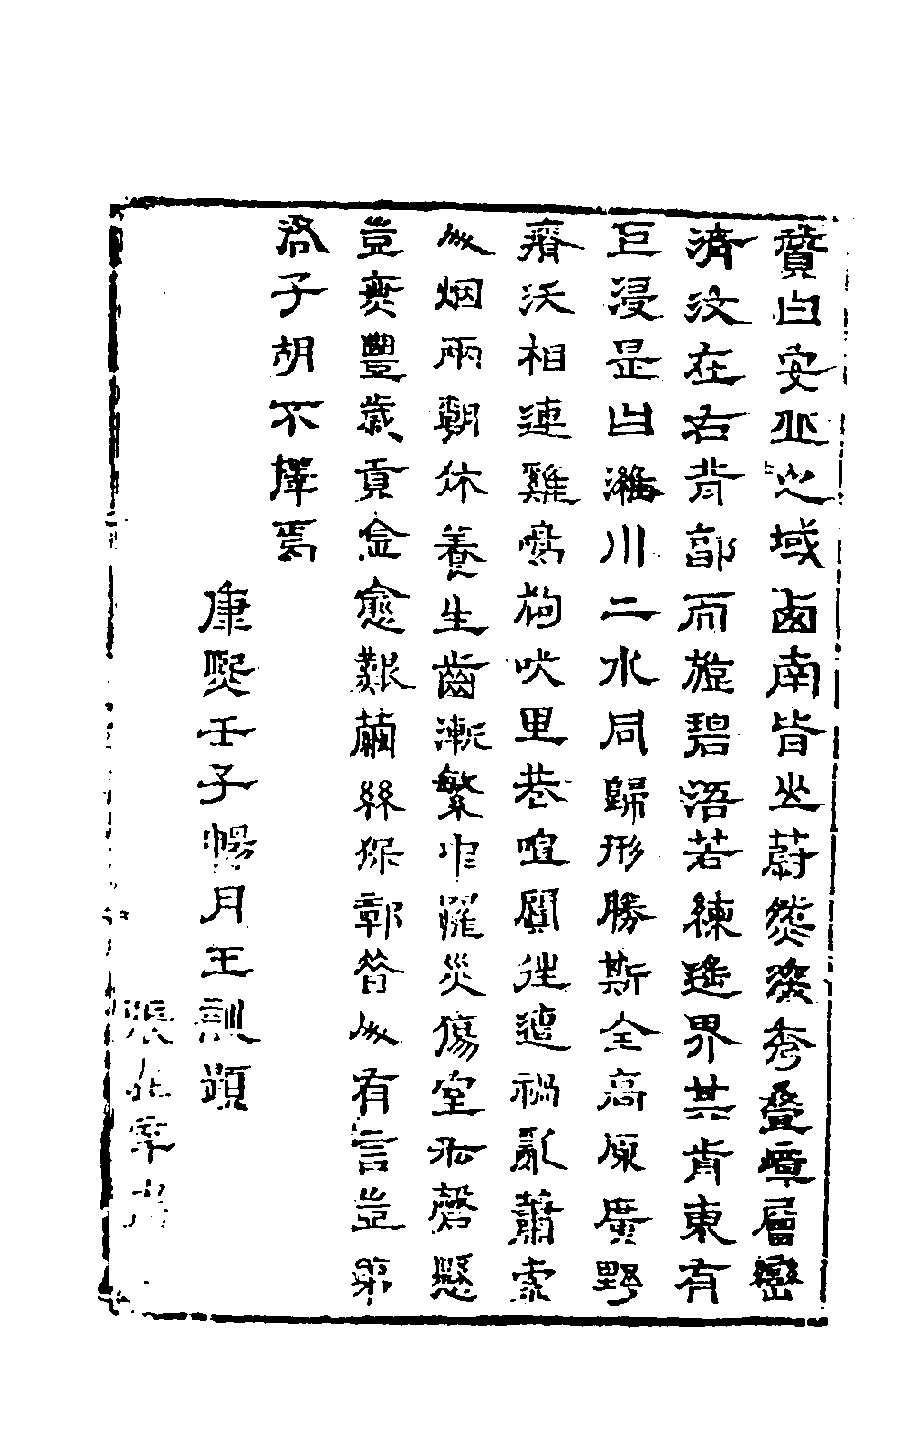 贊曰安丘之域西南皆山蔚然深秀叠嶂層巒
濟汶在右背郚而旋碧浯若練遙界其脊東有
巨浸是曰濰川二水同歸形勝斯全高原廣野
齊沃相連雞鳴狗吠里巷喧闐往遭禍亂蕭索
人烟兩朝休養生齒漸繁中罹災傷室如磬懸
豈無豐歲貢金愈艱繭絲保鄣昔人有言豈弟
君子胡不擇焉
康熙壬子暢月王訓題
張在辛書